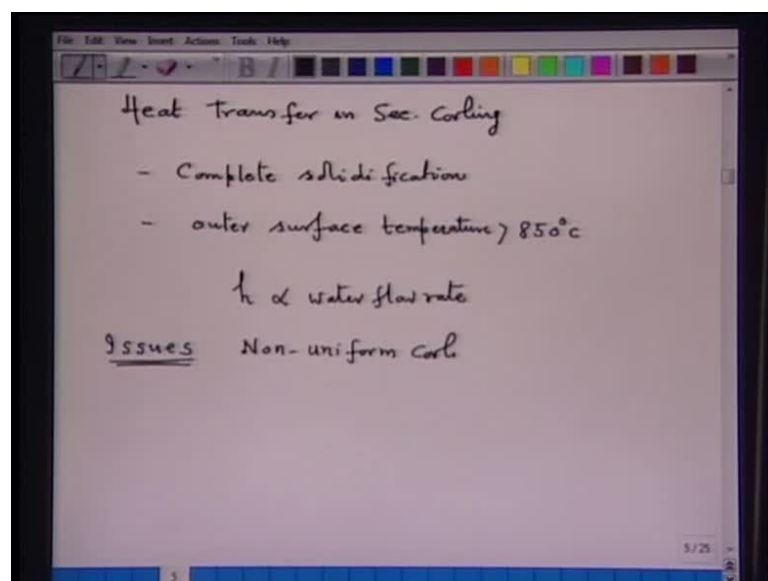 File Edit View Insert Actions Tools Help
Heat Transfer in Sec. Cooling
- Complete solidification
- outer surface temperature > 850°C
h ∝ water flow rate
Issues Non-uniform Cool
5/25
5